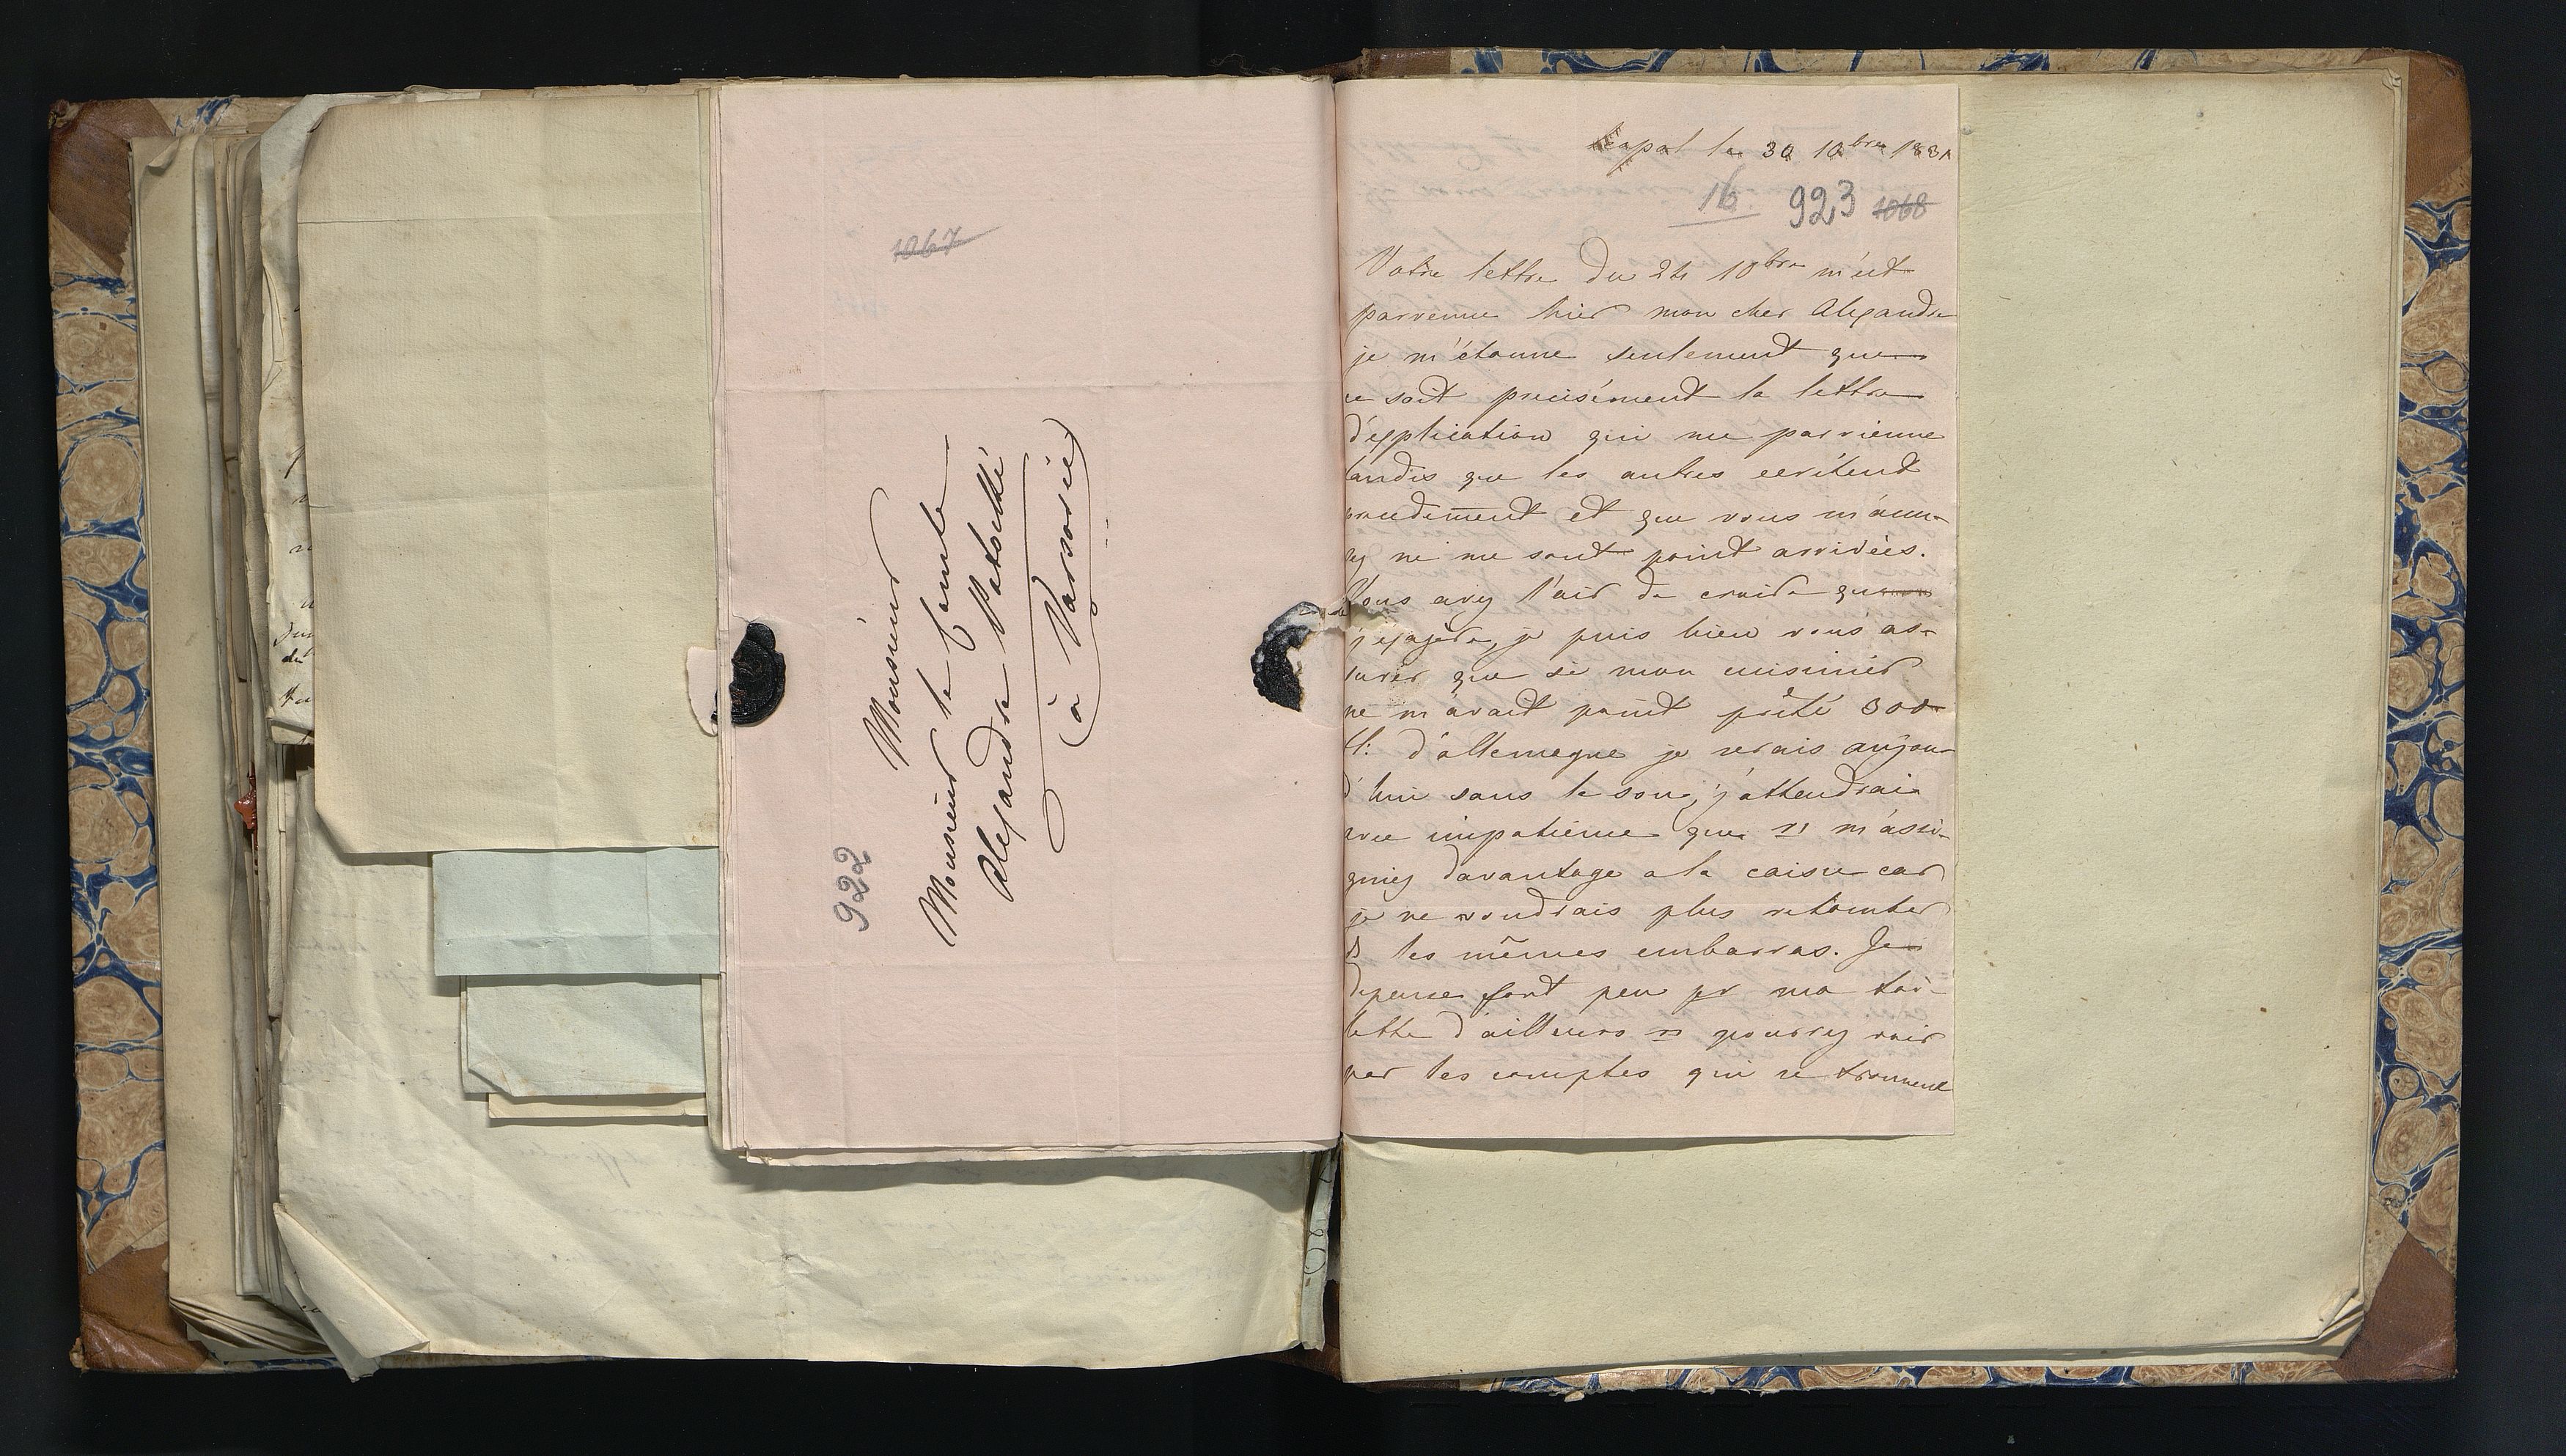 1067
922
Monsieur
Monsieur le Comte
Alexandre Potocki
à Varsovie
le 30 10bre 1831
16 923 1068
Votre lettre du 24 10bre m'est
parvenue hier mon cher Alexandre
je m'étonne seulement que
ce soit precisément la lettre
d'explication qui me parvienne
tandis que les autres
prudement et que vous m'
ne me sont point arrivées.
Vous avez l'air de croire que
j'exagère, je puis bien vous as-
surer que si mon cuisinier
ne m'avait point prêté 300
fl: d'allemagne je serais aujour-
d'hui sans le sou, j'attendrai
avec impatience que vs m'assi-
gniez davantage a la caisse car
je ne voudrais plus retomber
ds les mêmes embarras. Je
depense fort peu pr ma toi-
lette d'ailleurs vs pourrez voir
par les comptes qui se trouvent